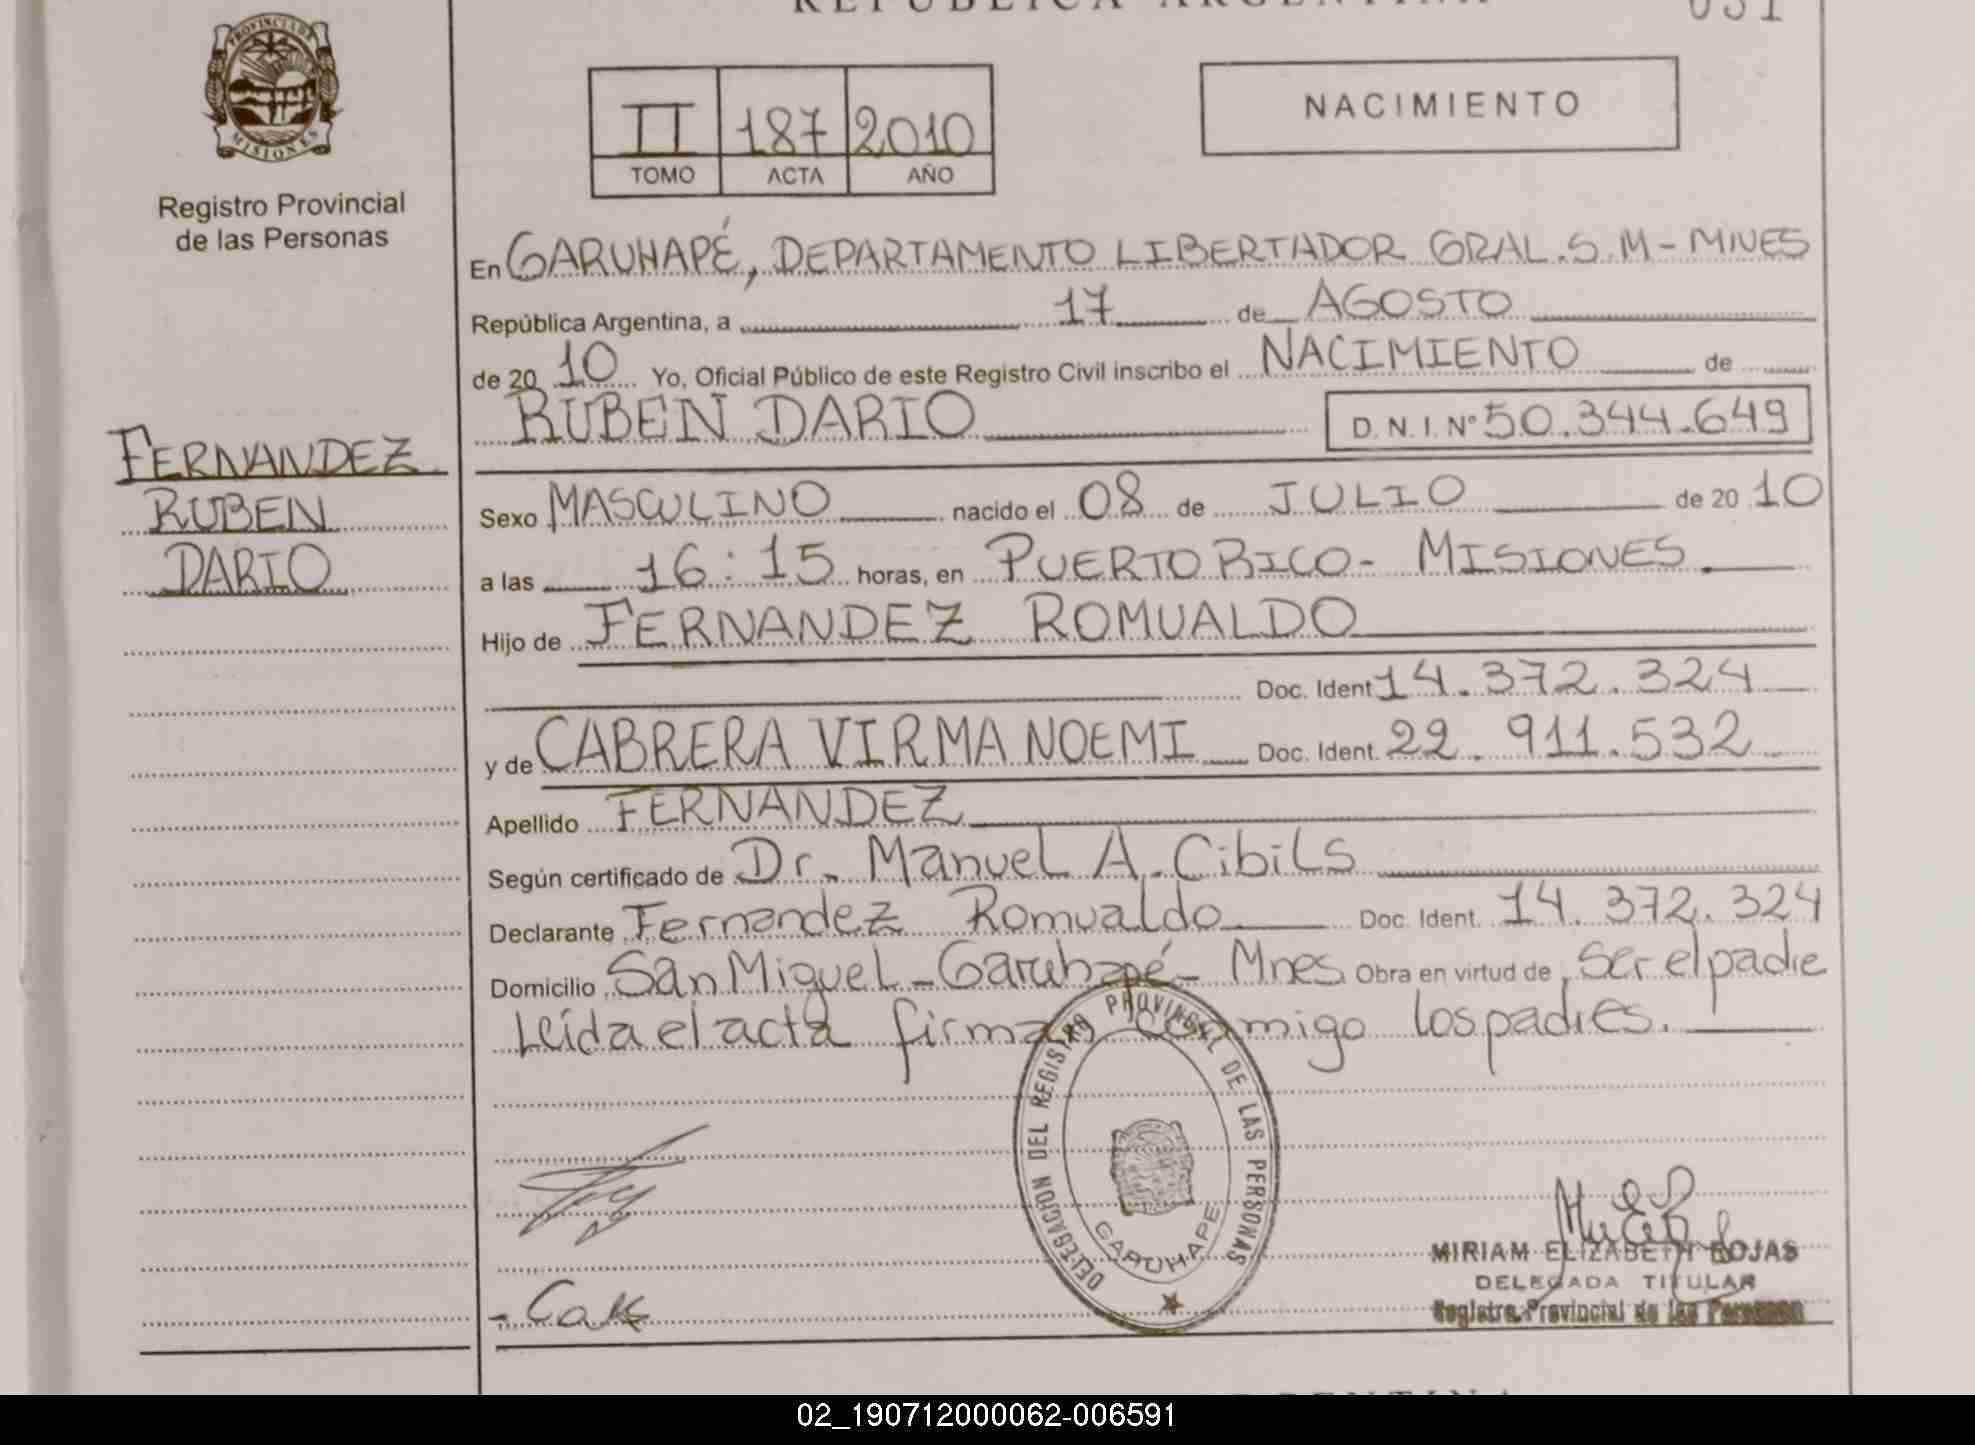 REPUBLICA ARGENTINA
031
PROVINCIA DE
MISIONES
Registro Provincial
de las Personas
II 187 2010
TOMO ACTA AÑO
NACIMIENTO
En GARUHAPÉ, DEPARTAMENTO LIBERTADOR GRAL. S. M - MNES
República Argentina, a 17 de AGOSTO
de 2010 Yo, Oficial Público de este Registro Civil inscribo el NACIMIENTO de
RUBEN DARIO D.N.I. Nº 50.344.649
FERNANDEZ
RUBEN
DARIO
Sexo MASCULINO nacido el 08 de JULIO de 2010
a las 16:15 horas, en PUERTO RICO - MISIONES.
Hijo de FERNANDEZ ROMUALDO
Doc. Ident 14.372.324
y de CABRERA VIRMA NOEMI Doc. Ident. 22.911.532
Apellido FERNANDEZ
Según certificado de Dr. Manuel A. Cibils
Declarante Fernandez Romualdo Doc. Ident. 14.372.324
Domicilio San Miguel - Garuhapé - Mnes Obra en virtud de ser el padre
Leída el acta firman conmigo los padres.
DELEGACION DEL REGISTRO PROVINCIAL DE LAS PERSONAS
GARUHAPE
MIRIAM ELIZABETH ROJAS
DELEGADA TITULAR
Registro Provincial de las Personas
ARGENTINA
02_190712000062-006591